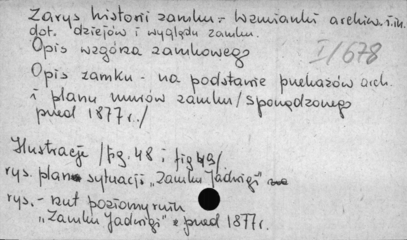 Zarys historii zamku - Wzmianki archiw. i in.
dot. dziejów i wyglądu zamku.
Opis wzgórza zamkowego
I/678
Opis zamku - na podstawie przekazów arch.
i planu murów zamku /sporządzonego
przed 1877 r./
Ilustracje /fig. 48 i fig 49/
rys. plan sytuacji "Zamku Jadwigi"
rys. - rzut poziomy ruin
"Zamku Jadwigi" z przed 1877 r.